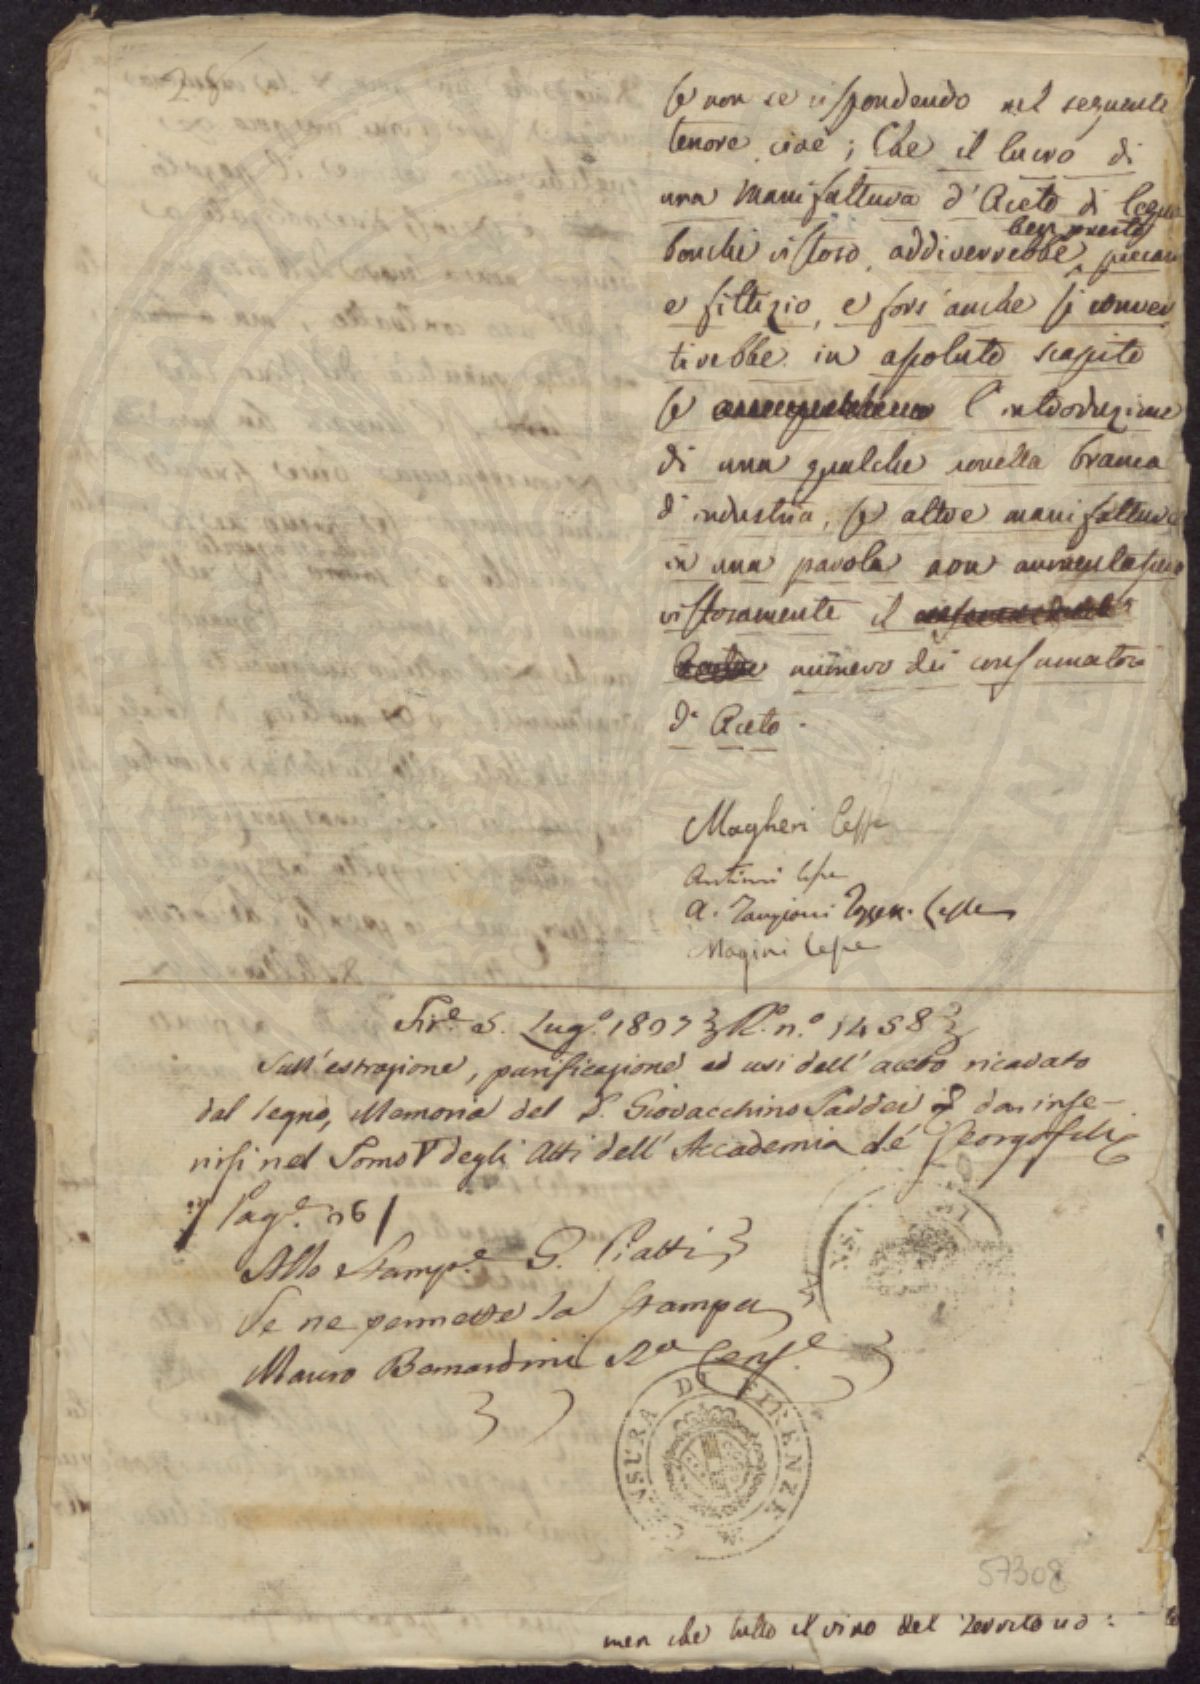 se non se rispondendo nel seguente
tenore, cioè; Che il lucro di
una Manifattura d'Aceto di Legno
ben presto
benchè vistoso, addiverrebbe precario
e fittizio, e fors'anche si conver
tirebbe in assoluto scapito
se l'introduzione
di una qualche novella branca
d'industria, se altre manifatture
in una parola non aumentassero
vistosamente il
numero dei consumatori
d'Aceto.
Magheri
Antinori
A. Targioni Tozzetti
Magini
Fire. 5. Lugo. 1827 Ro. n.o 1458
Sull'estrazione, purificazione ed usi dell'aceto ricavato
dal legno, Memoria del P. Giovacchino Taddei da inse-
rirsi nel Tomo V degli Atti dell'Accademia de' Georgofili
Page. 26
Allo Stampe. G. Piatti
Se ne permette la stampa
Mauro Bernardini Ro Cense.
CENSURA DI FIRENZE
57308
men che tutto il vino del Territorio: